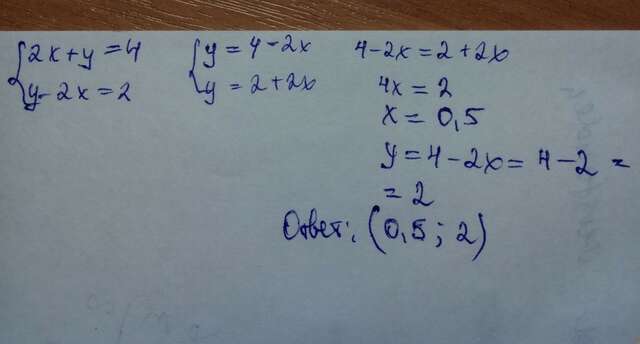 {2x+y=4
{y-2x=2
{y=4-2x
{y=2+2x
4-2x=2+2x
4x=2
x=0,5
y=4-2x=4-2=
=2
Ответ: (0,5; 2)